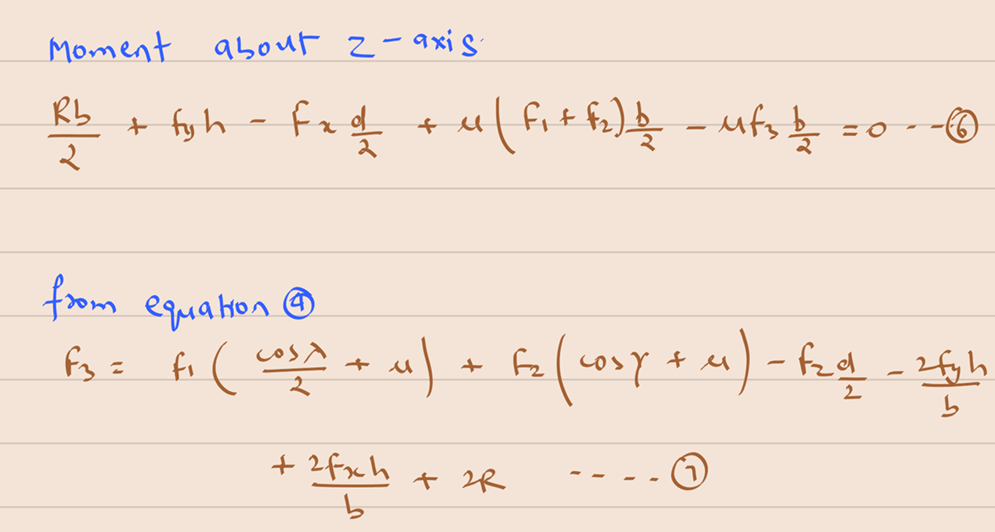 Moment about z-axis
Rb/2 + fyh - Fx d/2 + μ(F1 + F2) b/2 - μf3 b/2 = 0 --⑥
from equation ④
F3 = f1 ( cosλ/2 + μ ) + F2 ( cosγ + μ ) - Fz d/2 - 2fyh/b
+ 2fxh/b + 2R ----- ⑦